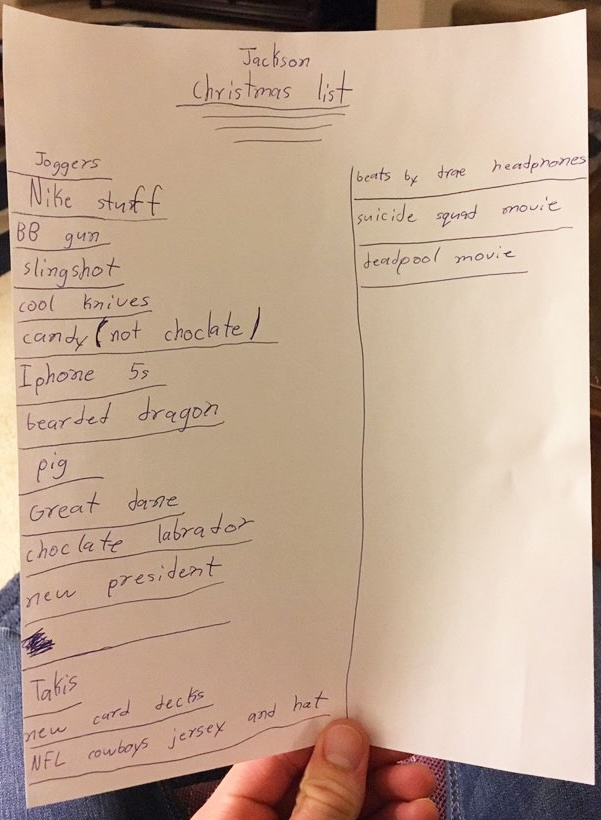 Jackson
Christmas list
Joggers
Nike stuff
BB gun
slingshot
cool knives
candy (not choclate)
Iphone 5s
bearded dragon
pig
Great dane
choclate labrador
new president
Takis
new card decks
NFL cowboys jersey and hat
beats by drae headphones
suicide squad movie
deadpool movie